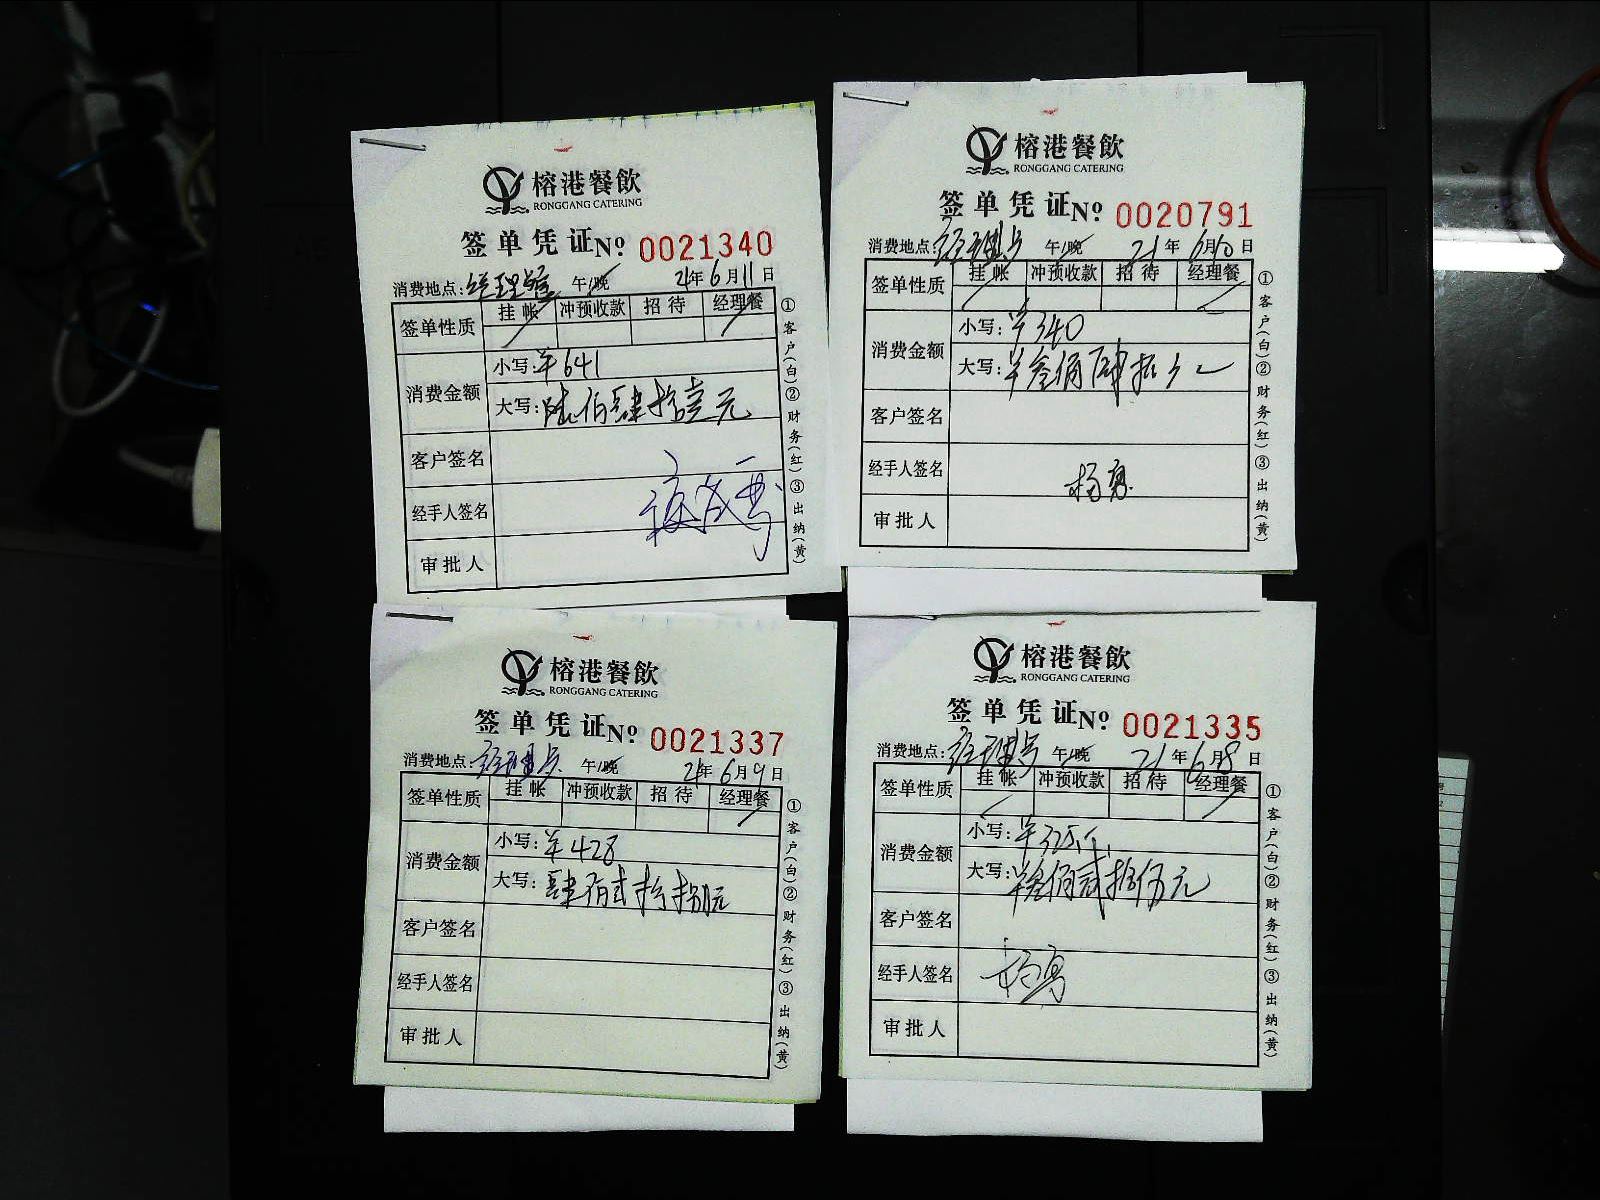 榕港餐飲
RONGGANG CATERING
签单凭证 No. 0021340
消费地点: 经理餐 午/晚 21年6月11日
签单性质 挂帐 冲预收款 招待 经理餐
消费金额 小写: ¥641
大写: 陆佰肆拾壹元
客户签名
经手人签名
审批人
①客户(白)②财务(红)③出纳(黄)
榕港餐飲
RONGGANG CATERING
签单凭证 No. 0020791
消费地点: 午/晚 21年6月10日
签单性质 挂帐 冲预收款 招待 经理餐
消费金额 小写: ¥340
大写: ¥叁佰肆拾元
客户签名
经手人签名 杨勇
审批人
①客户(白)②财务(红)③出纳(黄)
榕港餐飲
RONGGANG CATERING
签单凭证 No. 0021337
消费地点: 午/晚 21年6月9日
签单性质 挂帐 冲预收款 招待 经理餐
消费金额 小写: ¥428
大写: 肆佰贰拾捌元
客户签名
经手人签名
审批人
①客户(白)②财务(红)③出纳(黄)
榕港餐飲
RONGGANG CATERING
签单凭证 No. 0021335
消费地点: 午/晚 21年6月8日
签单性质 挂帐 冲预收款 招待 经理餐
消费金额 小写: ¥325元
大写: ¥叁佰贰拾伍元
客户签名
经手人签名 杨勇
审批人
①客户(白)②财务(红)③出纳(黄)